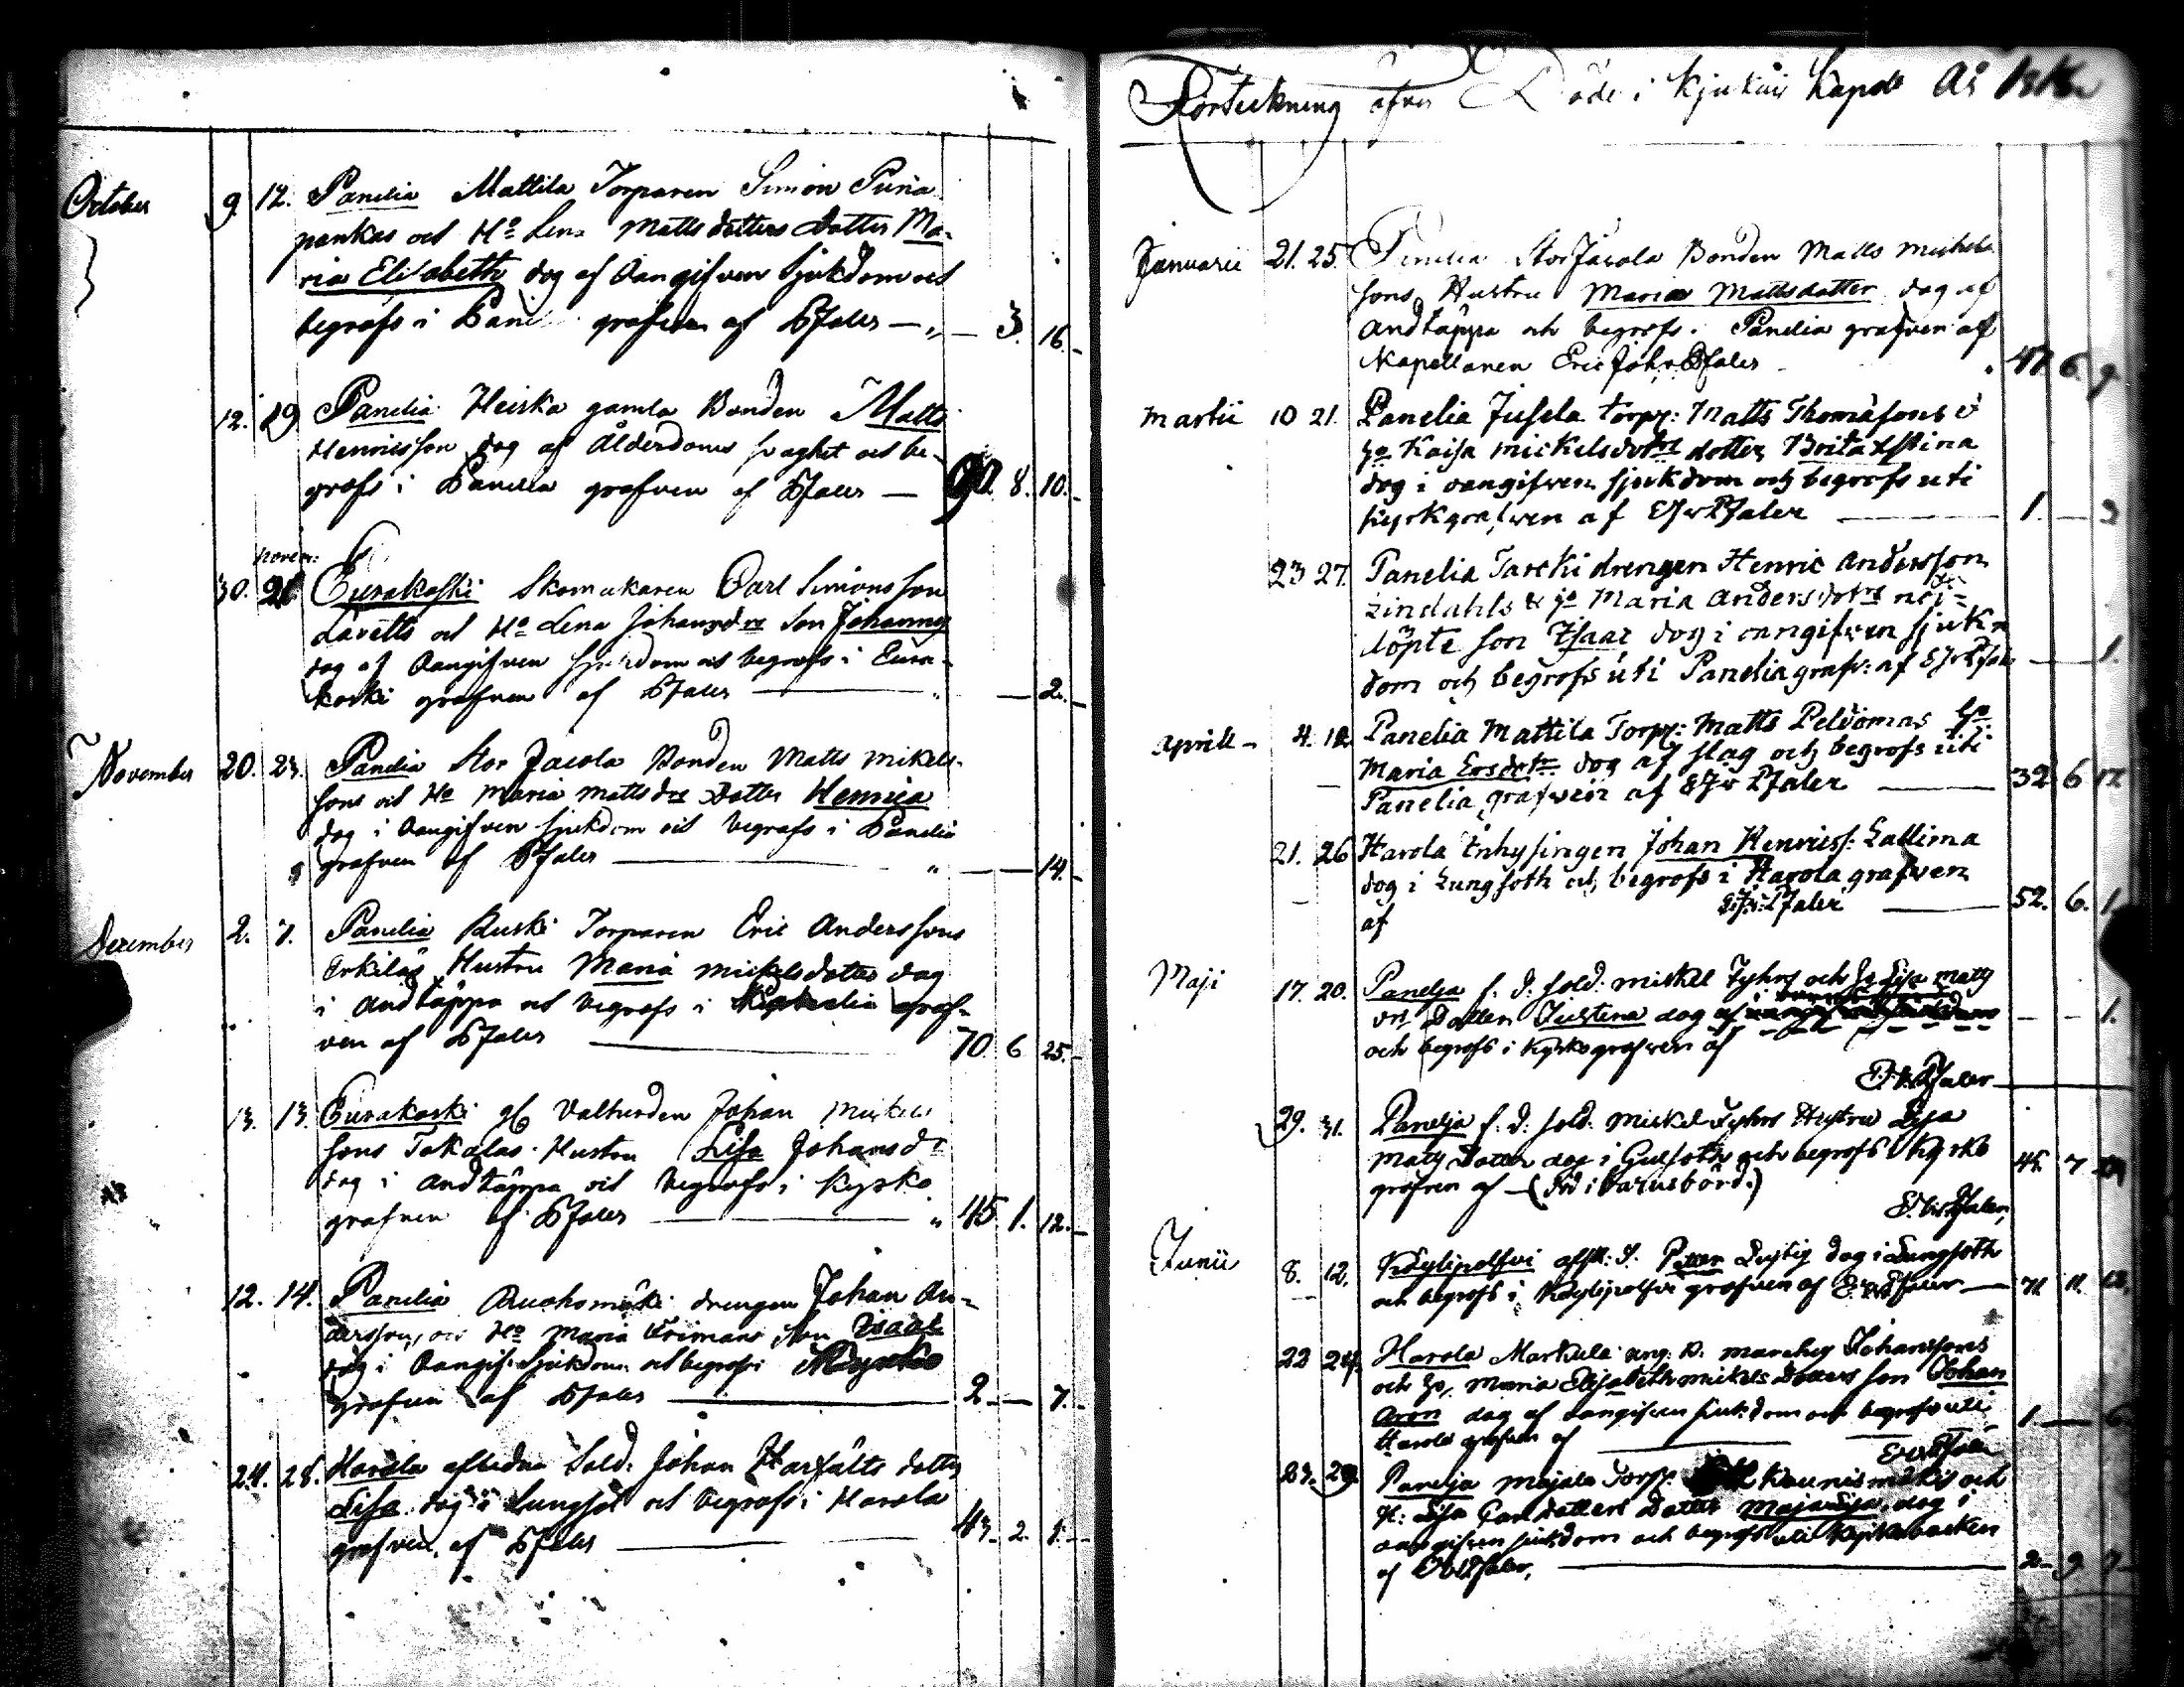 October 9. 12. Panelia Mattila Torparen Simon Puna
pankas och Ho Lena Matts dotters Dotter Ma-
ria Elisabeth dog af Oangifven Sjukdom och
begrofs i grafven af PJaler — „ — 3. 16.
12. 19 Panelia Heiska gamla Bonden Matts
Henricsson dog af Ålderdoms svaghet och be-
grofs i Panelia grafven af PJaler — 90. 8. 10.
Novem:
30. Eurakoski Skomakaren Carl Simonsson
Lavells och Ho Lena Johansdrs Son Johannes
dog af Oangifven Sjukdom och begrofs i Eura-
koski grafven af PJaler — „ — 2.
November 20. 23. Panelia Stor Jacola Bonden Matts Mikels-
sons och Ho Maria Matts drs Dotter Henrica
dog i Oangifven Sjukdom och begrofs i Panelia
grafven af PJaler — „ — 14.
December 2. 7. Panelia Ruski Torparen Eric Anderssons
Erkilas Hustru Maria Mickelsdotter dog
i Andtäppa och begrofs i graf-
ven af PJaler — 70. 6 25.
13. 13. Eurakoski Johan Mickels
sons Tokalas Hustru Lisa Johansdr
dog i Andtäppa och begrofs i Kyrko
grafven af PJaler — „ 45. 1. 12.
12. 14. Panelia Ruohomäki drengen Johan An-
dersson, och Ho Maria Frimans son Isaac
dog i Oangif. Sjukdom och begrofs i
grafven af PJaler — 2 — 7.
24. 28. Harola afledne Sold. Johan Harfälts dotter
Lisa dog i Lungsot och begrofs i Harola
grafven af PJaler — 43. 2. 8.
Förteckning öfver Döde i Kjukais Capell År
Januarii 21. 25. Panelia Stor Jacola Bonden Matts Mickels
sons Hustru Maria Mattsdotter dog af
Andtäppa och begrofs i Panelia grafven af
Kapellanen Eric Johr PJaler 47 6. 9.
Martii 10 21. Panelia Jusela torp: Matts Thomæsons &
ho Kaisa Mickelsdotrs dotter Brita Stina
dog i oangifven sjukdom och begrofs uti
kyrkgrafven af EJr PJaler — 1. — 3
23 27. Panelia Tarcki drengen Henric Andersson
Lindahls & ho Maria Andersdotrs nöd-
döpte son Isaac dog i oangifven sjuk-
dom och begrofs uti Panelia grafv: af EJr PJaler — 1.
Aprill 4. 12. Panelia Mattila Torp: Matts Peldomas ho
Maria Ersdotr dog af slag och begrofs uti
Panelia grafven af EJr PJaler — 32 6 17
21. 26 Harola Inhysingen Johan Henricss: Lallima
dog i Lungsoth och begrofs i Harola grafven
af E:Jr: PJaler — 52. 6. 1.
Maji 17. 20. Panelja f. d. sold. Mickel Fyhrs och ho Lisa Mats
drs Dotter Justina dog af
och begrofs i Kyrkogrofven af — — 1.
E. Jr PJaler
29. 31. Panelja f. d. sold. Mickel Fyhrs Hustru Lisa
Mats Dotter dog i Gulsoth och begrofs i Kyrko
grofven af — (död i Barnsbörd.) 45. 7
E. Jr PJaler
Junii 8. 12. Köylipolfvi afsk: S. Petter Lustig dog i Lungsoth
och begrofs i Köylipolfvi grofven af E. Jr PJaler — 71. 11. 12.
22 24. Harola Markula ung. B. Marckus Johanssons
och ho, Maria Elisabeth Mikels Dotters son Johan
Aron dog af oangifven sjukdom och begrofs uti
Harola grofven af — 1 — 6
E Jr PJaler
27. 29. Panelja Majala Torp. Kaunismäkis och
H: Lisa Carl Dotters Dotter Maja Lisa, dog i
oangifven sjukdom och begrofs uti Kyrkobacken
af E Jr PJaler, — 2 — 9 7